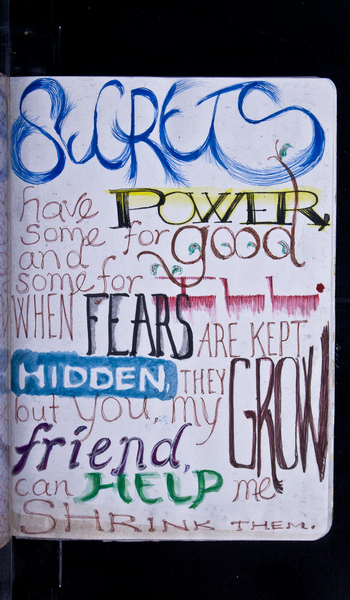 SECRETS
have POWER,
some for good
and
some for ILL.
WHEN FEARS ARE KEPT
HIDDEN, THEY GROW
but you, my
friend,
can HELP me
SHRINK THEM.